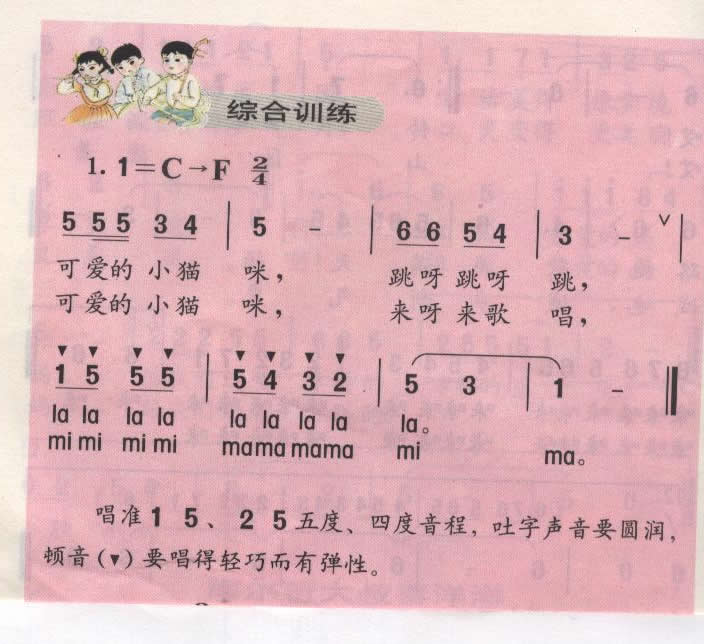 综合训练
1. 1=C→F 2/4
5 5 5 3 4 | 5 - | 6 6 5 4 | 3 - ∨ |
可爱的 小猫 咪， 跳呀 跳呀 跳，
可爱的 小猫 咪， 来呀 来歌 唱，
▼ ▼ ▼ ▼ ▼ ▼ ▼ ▼
1 5 5 5 | 5 4 3 2 | 5 3 | 1 - ‖
la la la la la la la la la。
mi mi mi mi ma ma ma ma mi ma。
唱准 1 5、2 5 五度、四度音程，吐字声音要圆润，
顿音(▼)要唱得轻巧而有弹性。